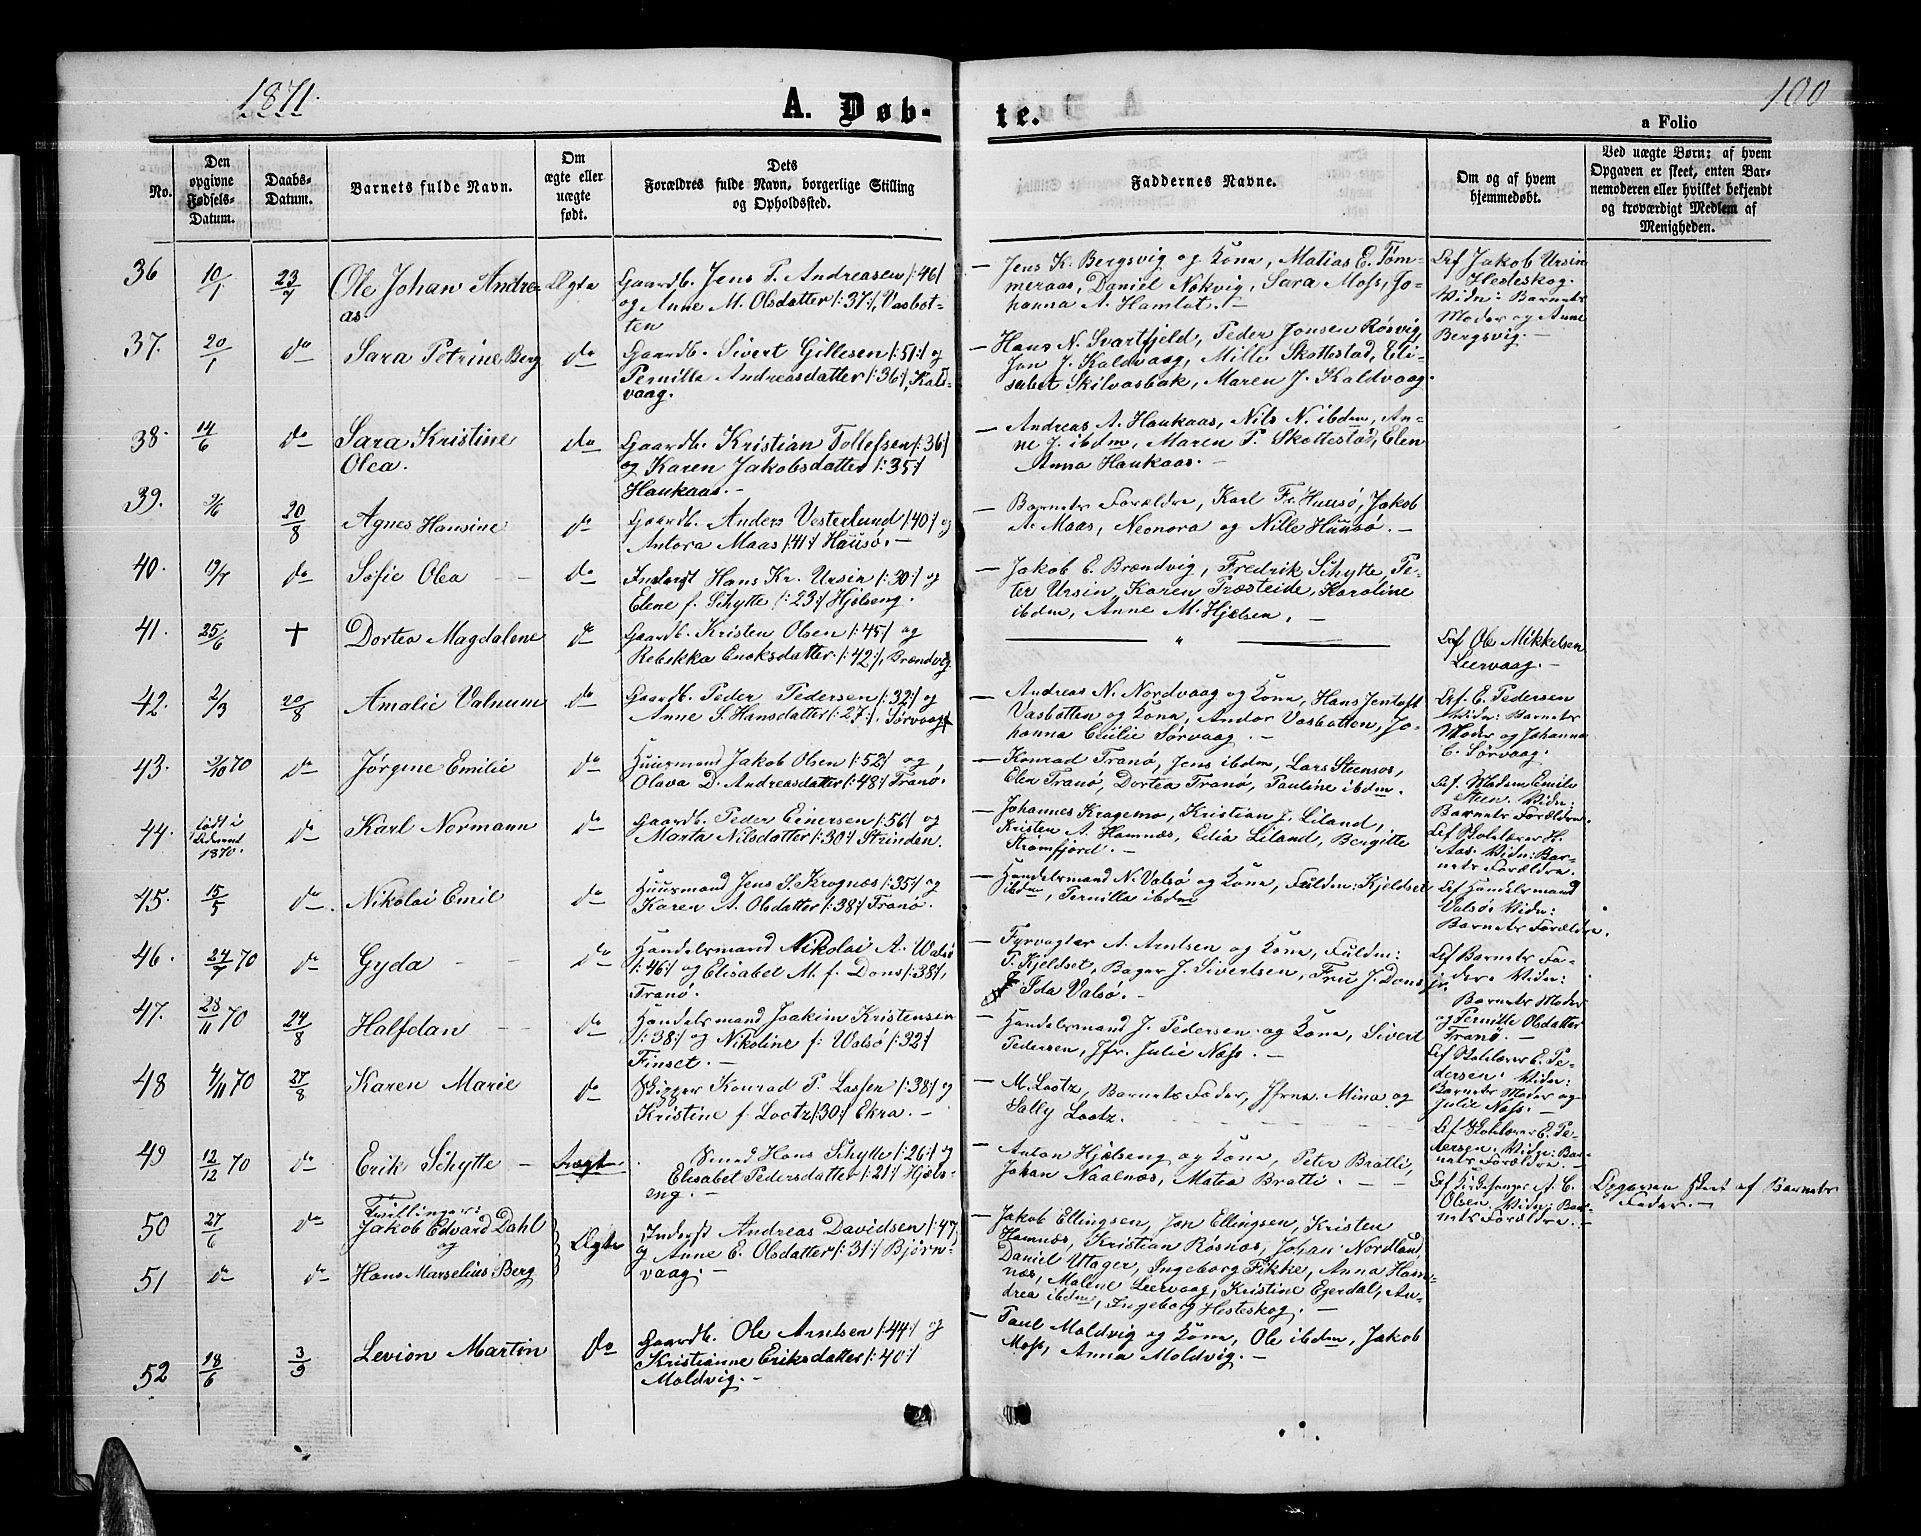 1871.
100
A. Døb-
te.
a Folio
No.
Den
opgivne
Fødsels-
Datum.
Daabs-
Datum.
Barnets fulde Navn.
Om
ægte eller
uægte
født.
Dets
Forældres fulde Navn, borgerlige Stilling
og Opholdssted.
Faddernes Navne.
Om og af hvem
hjemmedøbt.
Ved uægte Børn: af hvem
Opgaven er skeet, enten Bar-
nemoderen eller hvilket bekjendt
og troværdigt Medlem af
Menigheden.
36 10/1 23/7 Ole Johan Andre-
as.
Ægte
Gaardb. Jens P. Andreasen /:46/
og Anne M. Olsdatter /:37:/, Vasbot-
ten
— Jens K. Bergsvig og Kone, Matias E. Tøm-
meraas, Daniel Nøkvig, Sara Moss, Jo-
hanna A. Hamlot. +
Def Jakob Ursin
Hedeskog.
Vidn: Barnets
Moder og Anne
Bergsvig. —
37. 20/1 do Sara Petrine Berg do
Gaardb. Sivert Gillesen /:51:/ og
Pernilla Andreasdatter /:36/, Kald-
vaag.
Hans N. Svartfjeld, Peder Jonsen Røsvig,
Jon J. Kaldvaag, Mille Skottestad, Eli-
sabet Skilvasbak, Maren J. Kaldvaag.
38. 14/6 do Sara Kristine
Olea.
do
Gaardb. Kristian Tollefsen /:36/
og Karen Jakobsdatter /:35/
Haukaas. —
— Andreas A. Haukaas, Nils N. ibdm, An-
ne J. ibdm, Maren P. Skottestad, Elen
Anna Haukaas. —
39. 2/6 20/8 Agnes Hansine do
Gaardb. Anders Vesterlund /:40:/ og
Antora Maas /:41:/ Hausø. —
— Barnets Forældre, Karl Fr. Huusø, Jakob
A. Maas, Neonora og Nille Huusø. —
40. 19/7 do Sofie Olea — — do
Inderst Hans Kr. Ursin /:30:/ og
Elene f. Schytte /:23:/ Hjelseng.
— Jakob E. Brændvig, Fredrik Schytte, Pe-
ter Ursin, Karen Træsteide, Karoline
ibdm, Anne M. Hjelsen. —
41. 25/6 + Dortea Magdalene do
Gaardb. Kristen Olsen /:45/ og
Rebekka Enoksdatter /:42:/, Brændvig.
— " —
Def Ole Mikkelsen
Leervaag. —
42. 2/3 20/8 Amalie Valnum do
Gaardb. Peder Pedersen /:32:/ og
Anne S. Hansdatter /:27:/. Sørvaag
— Andreas N. Nordvaag og Kone, Hans Jentoft
Vasbotten og Kone, Andor Vasbotten, Jo-
hanna Cecilie Sørvaag. —
Def. E. Pedersen
Vidn: Barnets
Moder og Johanna
C. Sørvaag.
43. 9/10 70 do Jørgine Emilie do
Huusmand Jakob Olsen /:52/ og
Olava D. Andreasdatter /:48:/ Tranø.
— Konrad Tranø, Jens ibdm, Lars Steensos,
Elen Tranø, Dortea Tranø, Pauline ibdm.
Def. Madm Emilie
Steen. Vidn:
Barnets Forældre.
44. født i
1870.
do Karl Normann do
Gaardb. Peder Einersen /:56/ og
Marta Nilsdatter /:30:/ Strinden.
— Johannes Kragemo, Kristian J. Liland,
Kristen A. Hamnæs, Edia Liland, Bergitte
Strømfjord. —
Def Skolelærer H.
Aas. Vidn: Bar-
nets Forældre
45. 15/5 do. Nikolai Emil do
Huusmand Jens S. Krognæs /:35:/ og
Karen A. Olsdatter /:38:/ Tranø.
— Handelsmand N. Valsø og Kone, Fuldm: Kjeldset
ibdm, Pernilla ibdm
Def Handelsmand
Valsø. Vidn:
Barnets Forældre.
46. 24/7 70 do Gyda — — do
Handelsmand Nikolai A. Walsø
/:46:/ og Elisabet M. f. Dons /:38/,
Tranø.
— Fyrvogter A. Arntsen og Kone, Fuldm:
P. Kjeldset, Bager J. Sivertsen, Fru J. Dons,
Ida Valsø. —
Def Barnets Fa-
der. Vidn:
Barnets Moder
og Pernille Olsdatter
Tranø. —
47. 28/11 70 24/8 Halfdan — do
Handelsmand Joakim Kristensen
/:38:/ og Nikoline f: Walsø /:32:/
Finset. —
— Handelsmand J. Pedersen og Kone, Sivert
Pedersen, Jfr. Julie Næss. —
Def Skolelærer E. Pe-
dersen. Vidn:
Barnets Moder og
Julie Næss. —
48 4/11 70 27/8 Karen Marie do
Skipper Konrad P. Lassen /:38:/ og
Kristine f. Lootz /:30:/ Ekra. —
— M. Lootz, Barnets Fader, Jfrne Mina og
Sally Lootz.
Def Skolelærer E. Pe-
dersen. Vidn: Bar-
nets Forældre. —
49 12/12 70 do Erik Schytte — Uægte
Smed Hans Schytte /:26:/ og
Elisabet Pedersdatter /:21:/ Hjels-
eng. —
— Anton Hjelseng og Kone, Peter Bratli,
Johan Naalnæs, Matea Bratli. — —
Def Kirkesanger A. C.
Olsen, Vidn: Bar-
nets Forældre. —
Opgaven skeet af Barnets
Fader. —
50 27/6 do Tvillinger:
Jakob Edvard Dahl
og
Ægte
Inderst Andreas Davidsen /:47/
og Anne E. Olsdatter /:31:/ Bjørn-
vaag. —
— Jakob Ellingsen, Jon Ellingsen, Kristen
Hamnæs, Kristian Røsnæs, Johan Nordlund,
Daniel Utager, Ingeborg Fikke, Anna Ham-
næs, Malene Leervaag, Kristine Ejerdal, An-
drea ibdm, Ingeborg Hesteskog. —
51 do do Hans Marselius Berg
52 18/6 3/9 Levion Martin do
Gaardb. Ole Arntsen /:44:/ og
Kristianne Eriksdatter /:40:/
Moldvig. —
— Paul Moldvig og Kone, Ole ibdm, Jakob
Moss, Anna Moldvig. —